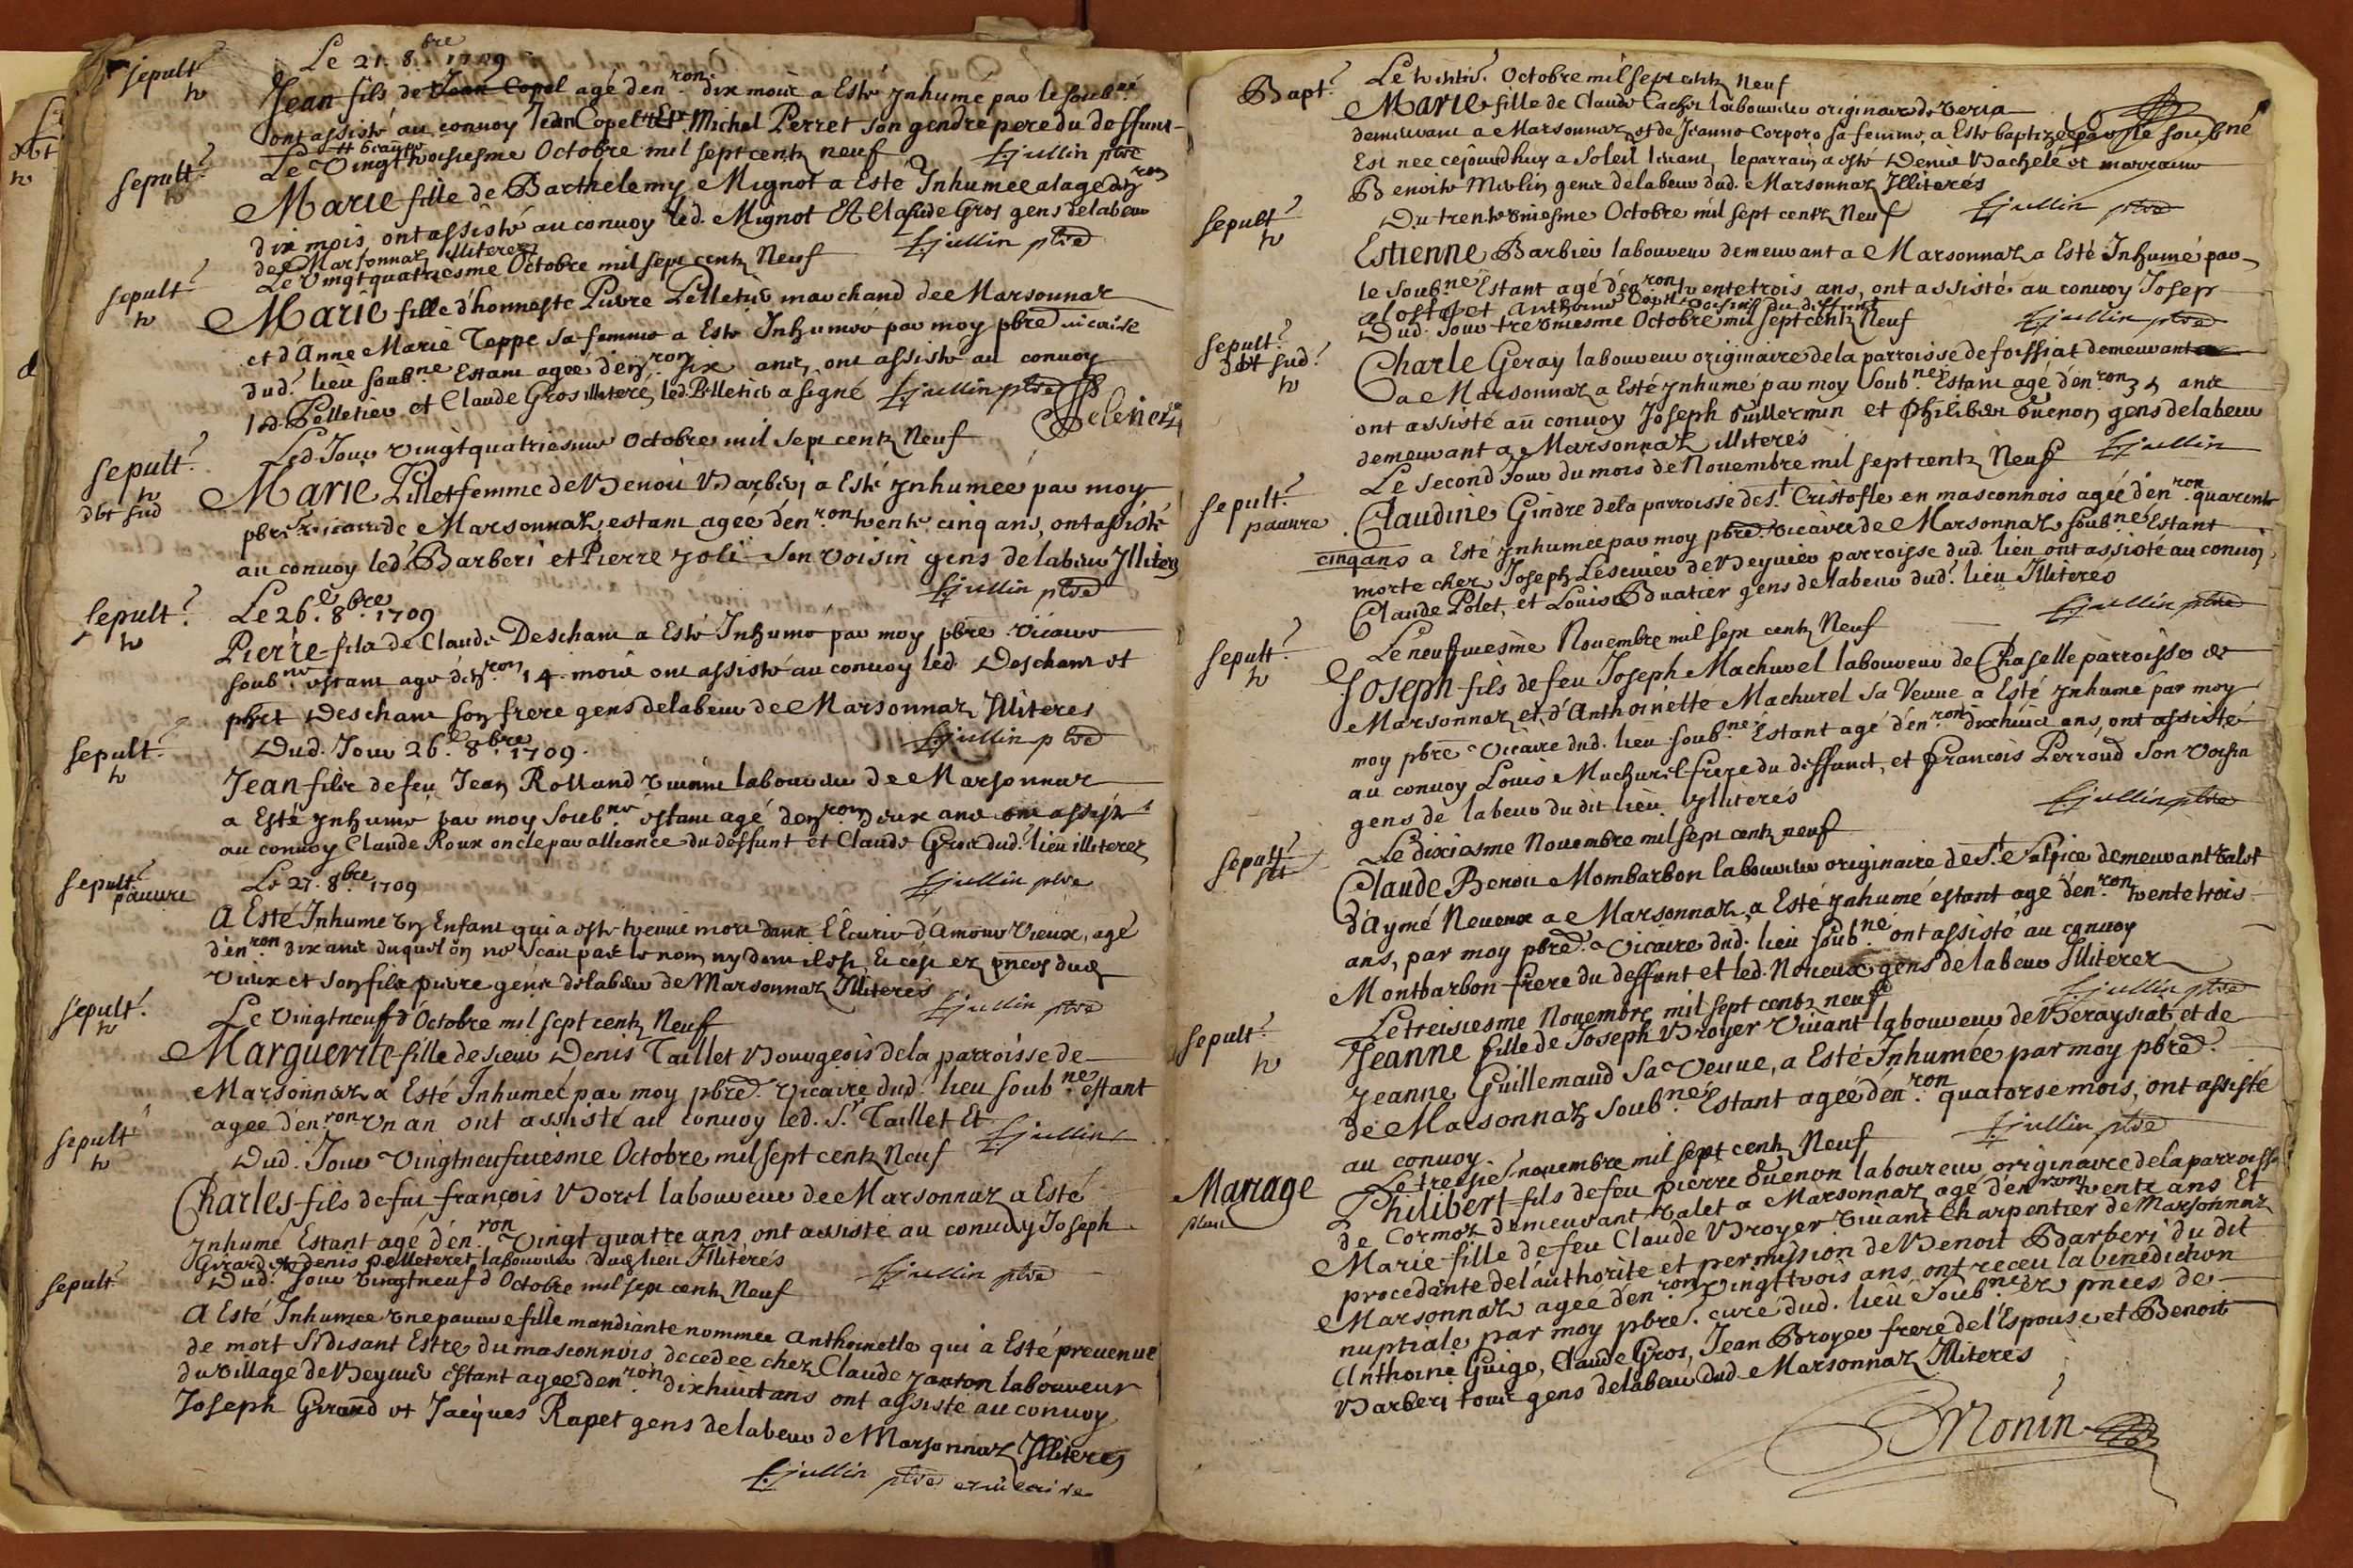 Sepult.
Le 21. 8.bre 1709
Jean fils de Jean Copel agé d'en.ron dix mois a Esté Jnhumé par le soub.né
ont assisté au convoy Jean Copel et Michel Perret son gendre pere du deffunt
Sepult.
Le Vingt troisiesme Octobre mil sept centz neuf
Ejullin pbre
Marie fille de Barthelemy Mignot a Esté Jnhumée a l'age d'en.ron
dix mois, ont assisté au convoy led. Mignot Et Claude Gros gens de labeur
de Marsonnaz illiterez
Ejullin pbre
Sepult.
Le Vingt quatriesme Octobre mil sept centz Neuf
Marie fille d'honneste Pierre Pelletier marchand de Marsonnaz
et d'Anne Marie Teppe sa femme a Esté Inhumée par moy pbre vicaire
dud. lieu soub.né Estant agée d'en.ron six ans, ont assisté au convoy
led. Pelletier et Claude Gros illiteré, led. Pelletier a signé Ejullin pbre
Sepult.
dbt sud
Led. Jour vingt quatriesme Octobre mil sept centz Neuf
Marie Pillet femme de Benoit Barberi a Esté Jnhumée par moy
pbre vicaire de Marsonnaz, estant agée d'en.ron trente cinq ans, ont assisté
au convoy led. Barberi et Pierre Joli son voisin gens de labeur Jlliterez
Ejullin pbre
Sepult.
Le 26.e 8.bre 1709
Pierre fils de Claude Descham a Esté Inhumé par moy pbre Vicaire
soub.né estant agé d'en.ron 14 mois ont assisté au convoy led. Descham et
phet Descham son frere gens de labeur de Marsonnaz Jlliteres
Ejullin pbre
Sepult.
Dud. Jour 26.e 8.bre 1709.
Jean fils de feu Jean Rolland vivant laboureur de Marsonnaz
a Esté Jnhumé par moy soub.né estant agé d'en.ron deux ans ont assisté
au convoy Claude Roux oncle par alliance du deffunt et Claude Gros dud. lieu illiterez
Ejullin pbre
Sepult.
pauvre
Le 27. 8.bre 1709
A Esté Inhumé un Enfant qui a esté treuvé mort dans l'Ecurie d'Amour Vieux, agé
d'en.ron dix ans duquel on ne scau pas le nom, ny d'ou il est, Et ce ez pnces dud.
Vieux et son fils pierre gens de labeur de Marsonnaz Jlliteres
Ejullin pbre
Sepult.
Le Vingt neuf d'Octobre mil sept centz Neuf
Marguerite fille de sieur Denis Taillet Bourgeois de la parroisse de
Marsonnaz a Esté Inhumée par moy pbre. Vicaire dud. lieu soub.né estant
agée d'en.ron Un an ont assisté au convoy led. S.r Taillet Et
Ejullin
Sepult
Dud. Jour Vingt neufviesme Octobre mil sept centz Neuf
Charles fils de feu françois Borel laboureur de Marsonnaz a Esté
Jnhumé Estant agé d'en.ron Vingt quatre ans, ont assisté au convoy Joseph
Girard et denis Pelleteret laboureur dud. lieu Jlliterés
Ejullin pbre
Sepult
Dud. Jour vingt neuf d'Octobre mil sept centz Neuf
A Esté Inhumée une pauvre fille mandiante nommée Anthoinette qui a Esté prevenue
de mort Si disant Estre du masconnois decedée chez Claude Janton laboureur
du village de Beyvier estant agée d'en.ron dix huict ans ont assisté au convoy
Joseph Girard et Jacques Rapet gens de labeur de Marsonnaz Jlliterez
Ejullin pbre et vicaire
Bapt.
Le trentie. Octobre mil sept centz Neuf
Marie fille de Claude Cachet laboureur originaire de Veria
demeurant a Marsonnaz et de Jeanne Corporo sa femme, a Esté baptizée par le soub.né
Est née cejourd'huy a Soleil levant, le parrain a esté Denis Bachelé et marraine
Benoite Mivlin gens de labeur dud. Marsonnaz Jlliterés
Ejullin pbre
Sepult.
Du trente uniesme Octobre mil sept centz Neuf
Estienne Barbier laboureur demeurant a Marsonnaz a Esté Inhumé par
le soub.né Estant agé d'en.ron trente trois ans, ont assisté au convoy Josep
Ejullin pbre
Sepult.
dbt sud.
Dud. Jour tre uniesme Octobre mil sept centz Neuf
Charle Geray laboureur originaire de la parroisse de foissiat demeurant
a Marsonnaz a Esté Jnhumé par moy soub.né Estant agé d'en.ron 35 ans
ont assisté au convoy Joseph Guillermin et Philibert Guenon gens de labeur
demeurant a Marsonnaz illiterés
Ejullin
Sepult.
pauvre
Le second Jour du mois de Novembre mil sept centz Neuf
Claudine Gindre de la parroisse de S.t Cristofle en masconnois agée d'en.ron quarente
cinq ans a Esté Jnhumée par moy pbre. vicaire de Marsonnaz soub.né Estant
morte chez Joseph Lescuier de Beyvier parroisse dud. lieu ont assisté au convoy
Claude Polet, et Louis Buatier gens de labeur dud. lieu Jlliterés
Ejullin pbre
Sepult.
Le neufviesme Novembre mil sept centz Neuf
Joseph fils de feu Joseph Machurel laboureur de Chaselle parroisse de
Marsonnaz et d'Anthoinette Machurel sa Veuve a Esté Jnhumé par moy
moy pbre Vicaire dud. lieu soub.né Estant agé d'en.ron dixhuict ans, ont assisté
au convoy Louis Machurel frere du deffunct, et françois Perroud son voisin
gens de labeur du dit lieu Jlliterés
Ejullin pbre
Sepult.
Le dixiesme Novembre mil sept centz neuf
Claude Benoit Mombarbon laboureur originaire de S.t Sulpice demeurant valet
d'Aymé Neveux a Marsonnaz, a Esté Jnhumé estant agé d'en.ron trente trois
ans, par moy pbre. Vicaire dud. lieu soub.né ont assisté au convoy
Montbarbon frere du deffunt et led. Neveux gens de labeur Jlliterez
Ejullin pbre
Sepult.
Le treisiesme Novembre mil sept centz neuf
Jeanne fille de Joseph Broyer Vivant laboureur de Beraysiat et de
Jeanne Guillemaud sa Veuve, a Esté Inhumée par moy pbre.
de Marsonnaz soub.né Estant agée d'en.ron quatorse mois, ont assisté
au convoy.
Ejullin pbre
Mariage
Le treisie. novembre mil sept centz Neuf
Philibert fils de feu pierre Guenon laboureur originaire de la parroisse
de Cormoz demeurant valet a Marsonnaz agé d'en.ron trente ans Et
Marie fille de feu Claude Broyer Vivant Charpentier de Marsonnaz
procedante de l'authorité et permission de Benoit Barberi du dit
Marsonnaz agée d'en.ron vingt trois ans ont receu la benediction
nuptiale par moy pbre. curé dud. lieu soub.né ez pnces de
Anthoine Guigo, Claude Gros, Jean Broyer frere de l'Espouse et Benoit
Barberi tous gens de labeur dud. Marsonnaz Jlliterés
Monin